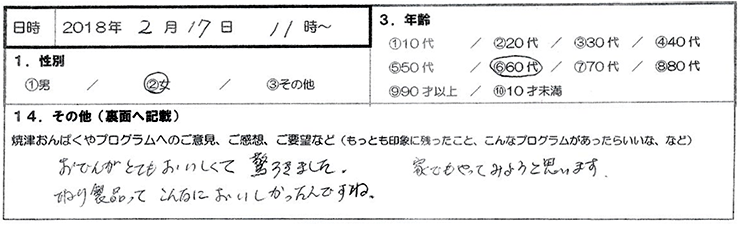 日時 2018年 2月17日 11時～
1. 性別
①男 ／ ②女 ／ ③その他
3. 年齢
①10代 ／ ②20代 ／ ③30代 ／ ④40代
⑤50代 ／ ⑥60代 ／ ⑦70代 ／ ⑧80代
⑨90才以上 ／ ⑩10才未満
14. その他（裏面へ記載）
焼津おんぱくやプログラムへのご意見、ご感想、ご要望など（もっとも印象に残ったこと、こんなプログラムがあったらいいな、など）
おでんがとてもおいしくて驚ろきました。 家でもやってみようと思います.
ねり製品ってこんなにおいしかったんですね。